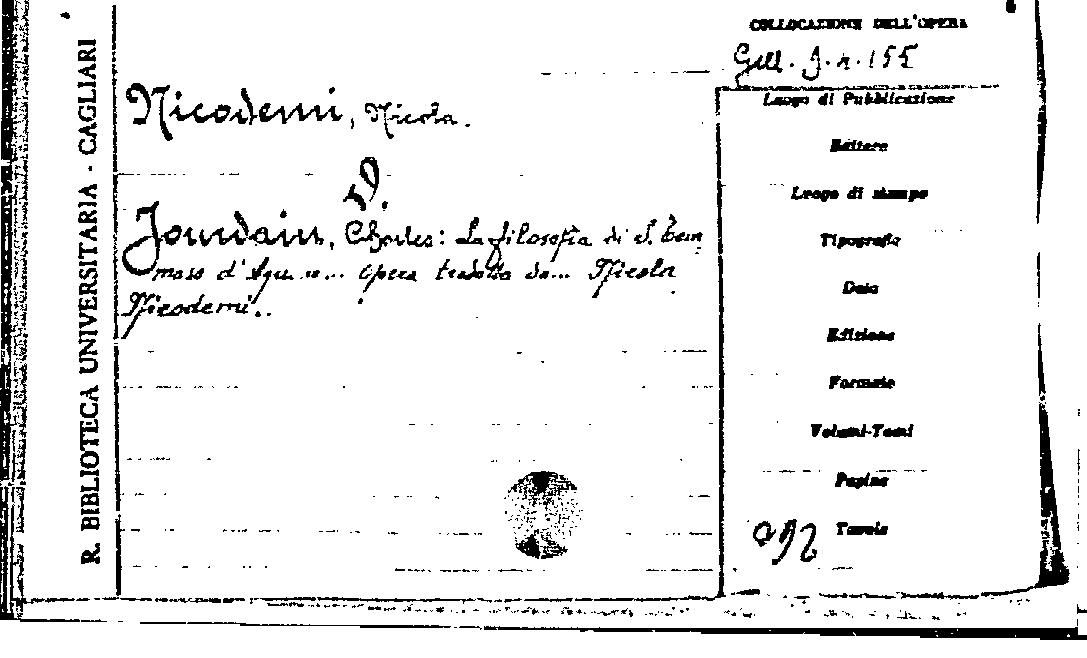 R. BIBLIOTECA UNIVERSITARIA - CAGLIARI
COLLOCAZIONE DELL'OPERA
Gall. J. n. 155
Nicodemi, Nicola.
v.
Jourdain, Charles: La filosofia di S. Tom
maso d'Aquino... opera tradotta da... Nicola
Nicodemi..
Luogo di Pubblicazione
Editore
Luogo di stampa
Tipografia
Data
Edizione
Formato
Volumi-Tomi
Pagine
Tavole